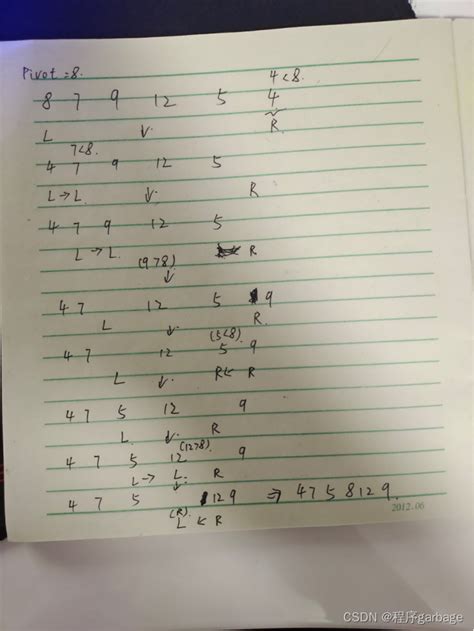 Pivot = 8.
4<8.
8 7 9 12 5 4
L ↓ R
7<8.
4 7 9 12 5
L → L ↓ R
4 7 9 12 5
L → L R
(9>8)
↓
4 7 12 5 9
L ↓ R
(5<8)
4 7 12 5 9
L ↓ R ← R
4 7 5 12 9
L ↓ R
(12>8)
4 7 5 12 9
L → L R
↓
4 7 5 12 9 ⇒ 4 7 5 8 12 9
(R)
L ← R
2012.06
CSDN @程序garbage